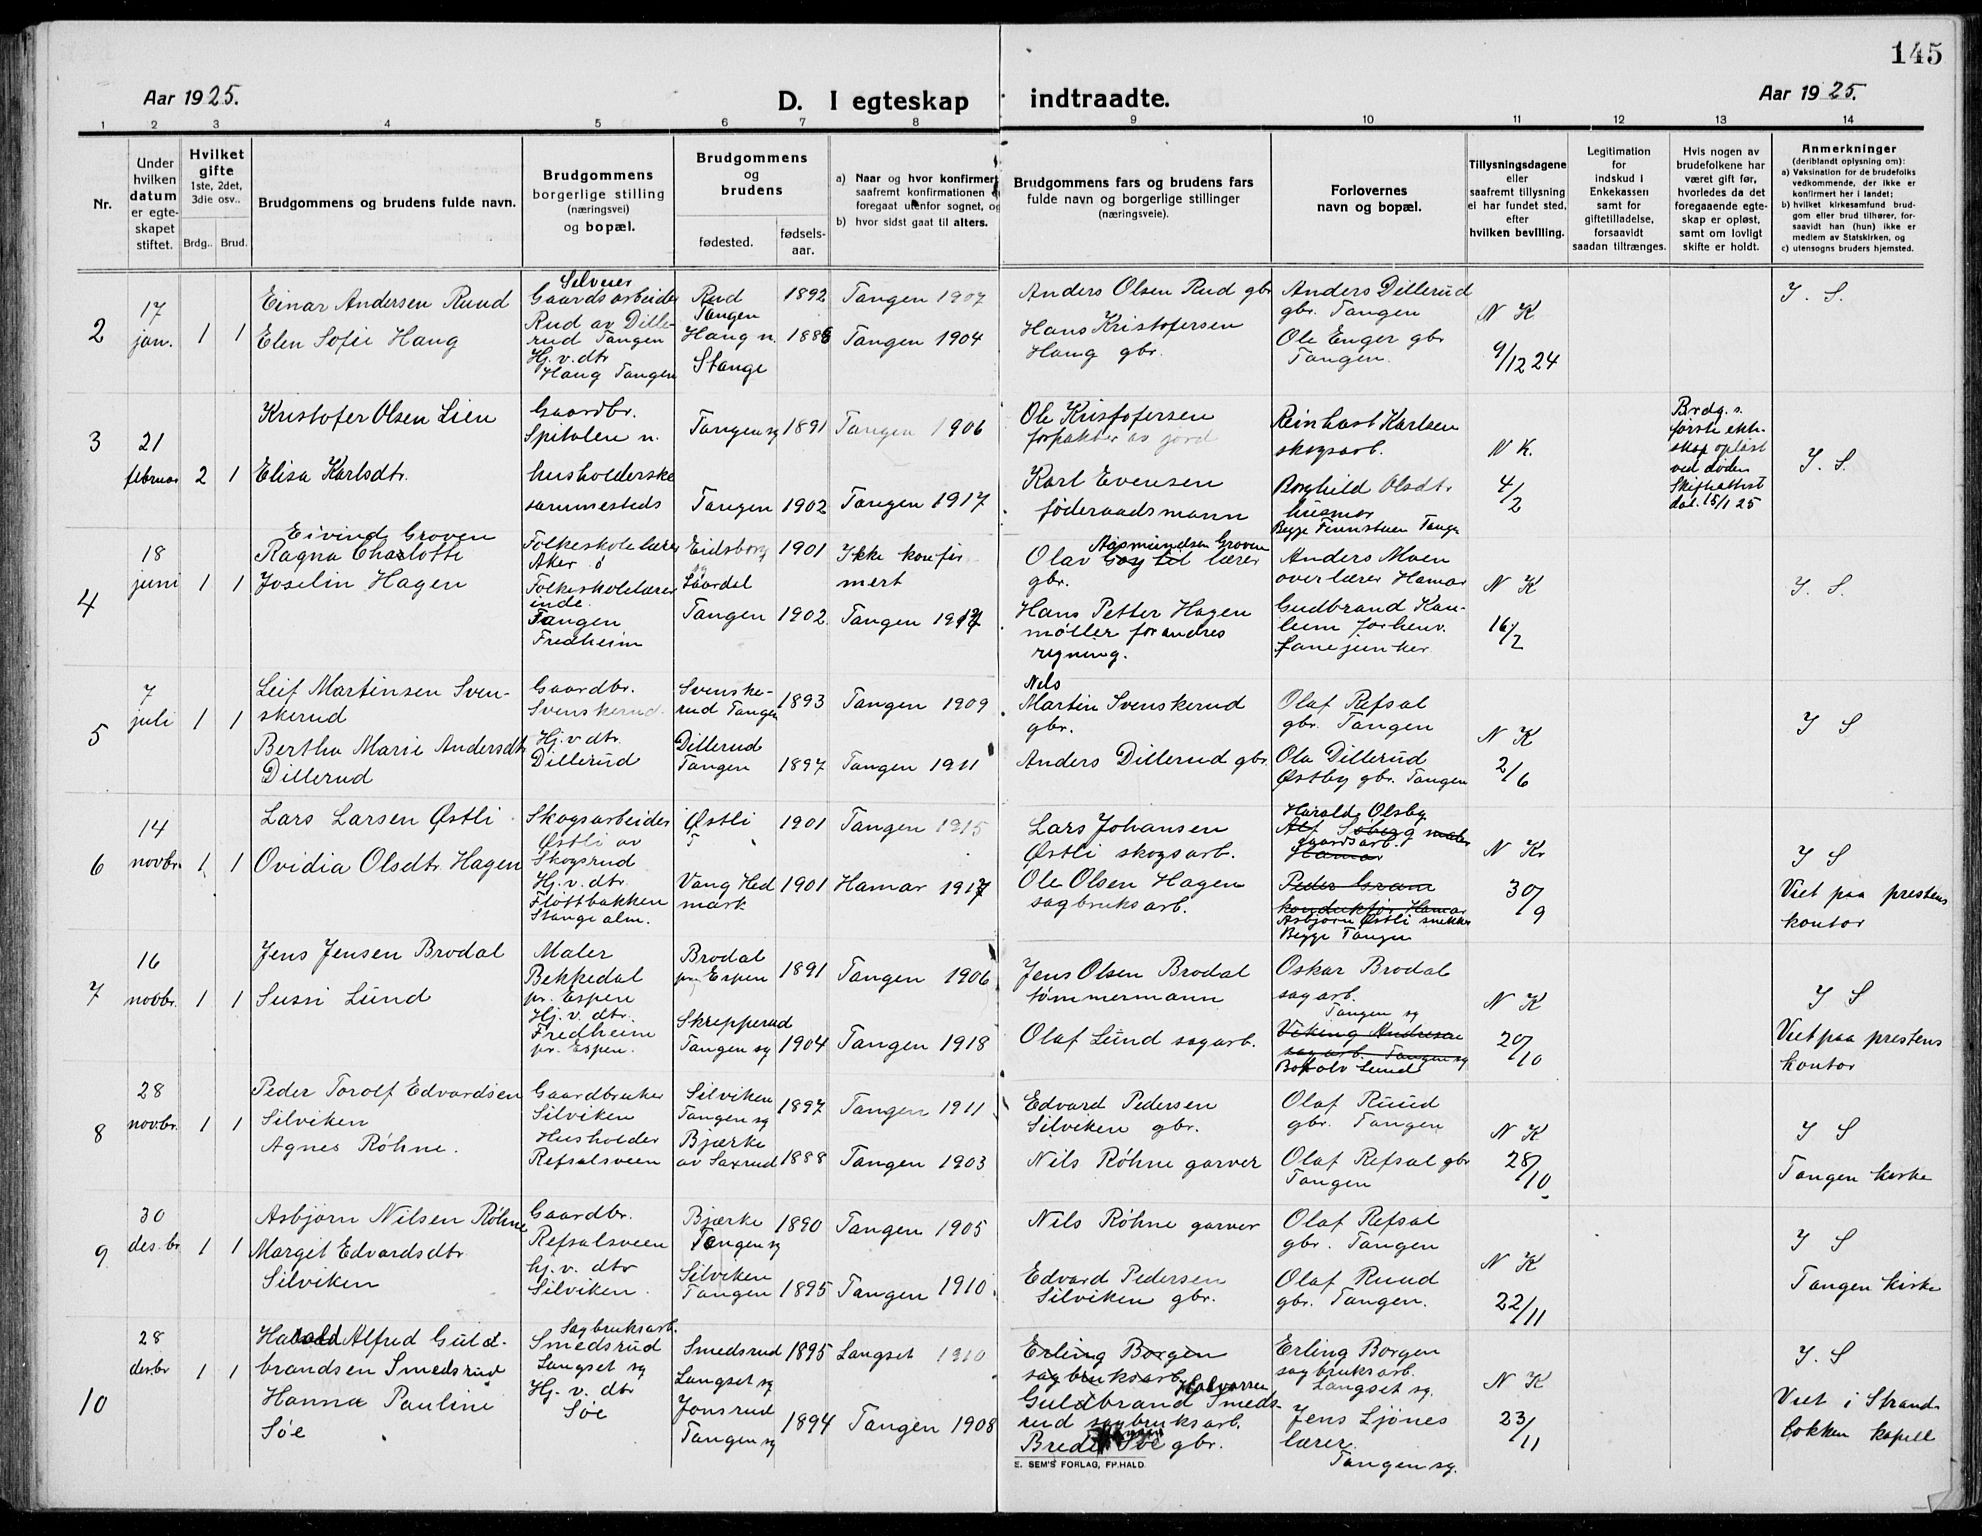 145
Aar 1925.
D. I egteskap indtraadte.
Aar 1925.
1 2 3 4 5 6 7 8 9 10 11 12 13 14
Nr.
Under hvilken datum er egteskapet stiftet.
Hvilket gifte 1ste, 2det, 3die osv..
Brdg.. Brud.
Brudgommens og brudens fulde navn.
Brudgommens borgerlige stilling (næringsvei) og bopæl.
Brudgommens og brudens
fødested. fødsels-aar.
a) Naar og hvor konfirmert
saafremt konfirmationen
foregaat utenfor sognet, og
b) hvor sidst gaat til alters.
Brudgommens fars og brudens fars
fulde navn og borgerlige stillinger
(næringsveie).
Forlovernes
navn og bopæl.
Tillysningsdagene
eller
saafremt tillysning
ei har fundet sted,
efter
hvilken bevilling.
Legitimation
for
indskud i
Enkekassen
samt for
giftetilladelse,
forsaavidt
saadan tiltrænges.
Hvis nogen av
brudefolkene har
været gift før,
hvorledes da det
foregaaende egte-
skap er opløst,
samt om lovligt
skifte er holdt.
Anmerkninger
(deriblandt oplysning om):
a) Vaksination for de brudefolks
vedkommende, der ikke er
konfirmert her i landet;
b) hvilket kirkesamfund brud-
gom eller brud tilhører, for-
saavidt han (hun) ikke er
medlem av Statskirken, og
c) utensogns bruders hjemsted.
2
17
jan.
1 1
Einar Andersen Ruud
Elen Sofie Haug
Gaardsarbeider
Rud av Dille-
rud Tangen
Hj. v. dtr
Haug Tangen
Rud
Tangen
Haug n.
Stange
1892
1886
Tangen 1907
Tangen 1904
Anders Olsen Rud gbr
Hans Kristofersen
Haug gbr.
Anders Dillerud
gbr. Tangen
Ole Enger gbr
Tangen.
N K
9/12 24
I. S.
3
21
februar
2 1
Kristofer Olsen Lien
Elisa Karlsdtr.
Gaardbr.
Spitalen n.
husholderske
sammesteds
Tangen sg
Tangen
1891
1902
Tangen 1906
Tangen 1917
Ole Kristofersen
forpakter av jord
Karl Evensen
føderaadsmann
Reinhart Karlsen
skogsarb.
Borghild Olsdtr
husmor
Begge Finnstuen Tangen
N K.
4/2
Brdg. s.
første ekte-
skap opløst
ved døden
Skifteattest
dat. 15/1 25
I. S.
4
18
juni
1 1
Eivind Groven
Ragna Charlotte
Joselin Hagen
Folkeskolelærer
Aker
Folkeskolelærer
inde.
Tangen
Fredheim
Eidsborg
Laardal
Tangen
1901
1902
Ikke konfir
mert
Tangen 1917
Aasmundsen Groven
Olav lærer
gbr.
Hans Petter Hagen
møller for andres
regning.
Anders Moen
overlærer Hamar
Gudbrand Kau-
lum forhenv.
fanejunker
N K
16/2
I. S.
5
7
juli
1 1
Leif Martinsen Sven-
skerud
Bertha Marie Andersdtr
Dillerud
Gaardbr.
Svenskerud
Hj. v dtr.
Dillerud
Svenske-
rud Tangen
Dillerud
Tangen
1893
1897
Tangen 1909
Tangen 1911
Nils
Martin Svenskerud
gbr.
Anders Dillerud gbr
Olaf Refsal
gbr. Tangen
Ola Dillerud
Østby gbr. Tangen
N K
2/6
I S
6
14
novbr.
1 1
Lars Larsen Østli
Ovidia Olsdtr Hagen
Skogsarbeider
Østli av
Skogsrud
Hj. v. dtr.
Fløttbakken
Stange alm.
Østli
T
Vang Hed
mark
1901
1901
Tangen 1915
Hamar 1917
Lars Johansen
Østli skogsarb.
Ole Olsen Hagen
sagbruksarb.
Harald Olsby
gaardsarb.
Hamar
Peder Gram
konduktør Hamar
Asbjørn Østli snekker
Begge Tangen
N K
30/9
I S
Viet paa prestens
kontor
7
16
novbr.
1 1
Jens Jensen Brodal
Sussi Lund
Maler
Bekkedal
pr. Espen
Hj. v. dtr.
Fredheim
pr. Espen.
Brodal
pr. Espen
Skrepperud
Tangen sg
1891
1904
Tangen 1906
Tangen 1918
Jens Olsen Brodal
tømmermann
Olaf Lund sagarb.
Oskar Brodal
sagarb.
Tangen sg
Viking Andresen
sagarb. Tangen sg
Botolv Lund
N K
20/10
I S
Viet paa prestens
kontor
8
28
novbr.
1 1
Peder Torolf Edvardsen
Silviken
Agnes Røhne.
Gaardbruker
Silviken
Husholder
Refsalsveen
Silviken
Tangen sg
Bjærke
av Saxrud
1897
1888
Tangen 1911
Tangen 1903
Edvard Pedersen
Silviken gbr.
Nils Røhne garver
Olaf Ruud
gbr. Tangen
Olaf Refsal gbr
Tangen
N K
28/10
I S
Tangen kirke
9
30
des.br
1 1
Asbjørn Nilsen Røhne
Margit Edvardsdtr
Silviken
Gaardbr.
Refsalsveen
hj. v. dtr
Silviken
Bjærke
Tangen sg
Silviken
Tangen
1890
1895
Tangen 1905
Tangen 1910.
Nils Røhne garver
Edvard Pedersen
Silviken gbr.
Olaf Refsal
gbr. Tangen
Olaf Ruud
gbr. Tangen.
N K
22/11
I S
Tangen kirke
10
28
des.br
1 1
Harald Alfred Guld-
brandsen Smedsrud
Hanna Pauline
Søe
Sagbruksarb.
Smedsrud
Langset sg
Hj. v. dtr
Søe
Smedsrud
Langset sg
Jonsrud
Tangen sg
1895
1894
Langset 1910
Tangen 1908
Erling Borgen
sagbruksarb.
Halvorsen
Guldbrand Smeds-
rud sagbruksarb.
Brede Søe gbr.
Erling Borgen
sagbruksarb.
Langset sg.
Jens Ljønes
lærer.
Tangen sg.
N K
23/11
I. S
Viet i Strand-
løkken kapell
E. SEM'S FORLAG, FR.HALD